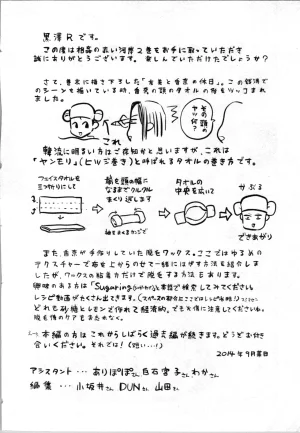 黒澤Rです。
この度は相姦の赤い河岸2巻をお手に取っていただき
誠にありがとうございます。楽しんでいただけたでしょうか?
さて、巻末に描き下ろした
の休日」。この銭湯で
のシーンを描いている時、
の頭のタオルの件をツッコまれ
ました。
その頭の
ヤツ、何?
これ
韓流に明るい方はご存知かと思いますが、これは
「ヤンモリ」(ヒツジ巻き)と呼ばれるタオルの巻き方です。
フェイスタオルを
三つ折りにして
端を頭の幅に
なるまでクルクル
まくり返します
タオルの
中央を広げて
かぶる
できあがり
また、
が手作りしていた脱毛ワックス。ここではゆるめの
テクスチャーで布を上からのせて一緒にはがす方法を紹介しま
したが、ワックスの粘着力だけで脱毛する方法もあります。
興味のある方は「Sugaring
」で検索してみてください。
レシピ動画がたくさん出てきます。
どれも砂糖とレモンで作れて経済的。でも火傷に注意してくださいね。
脱毛後のケアもお忘れなく。
本編の方はこれからしばらく過去編が続きます。どうぞお付き
合いください。それでは!
2014年9月末日
アシスタント…ありぽぽさん 白石寧子さん わかさん
編集…小坂井さん DUNさん 山田さん